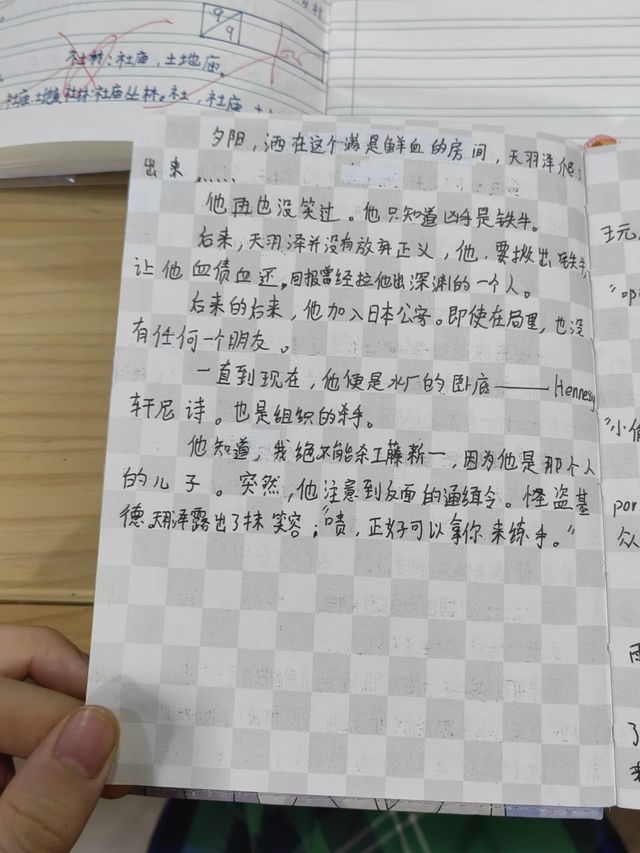 9
9
社林:社庙,土地庙。
社林:社庙丛林。社,社庙,土
夕阳,洒在这个满是鲜血的房间,天羽泽爬
出来……
他再也没笑过。他只知道凶手是铁牛。
后来,天羽泽并没有放弃正义,他,要揪出铁牛,
让他血债血还,回报曾经拉他出深渊的一个人。
后来的后来,他加入日本公安。即使在局里,也没
有任何一个朋友。
一直到现在,他便是水厂的卧底——Hennessy
轩尼诗。也是组织的杀手。
他知道,我绝不能杀工藤新一,因为他是那个人
的儿子。突然,他注意到反面的通缉令。怪盗基
德天羽泽露出了抹笑容;"啧,正好可以拿你来练手。"
王元
"叩
"小偷
por
众
雨
了